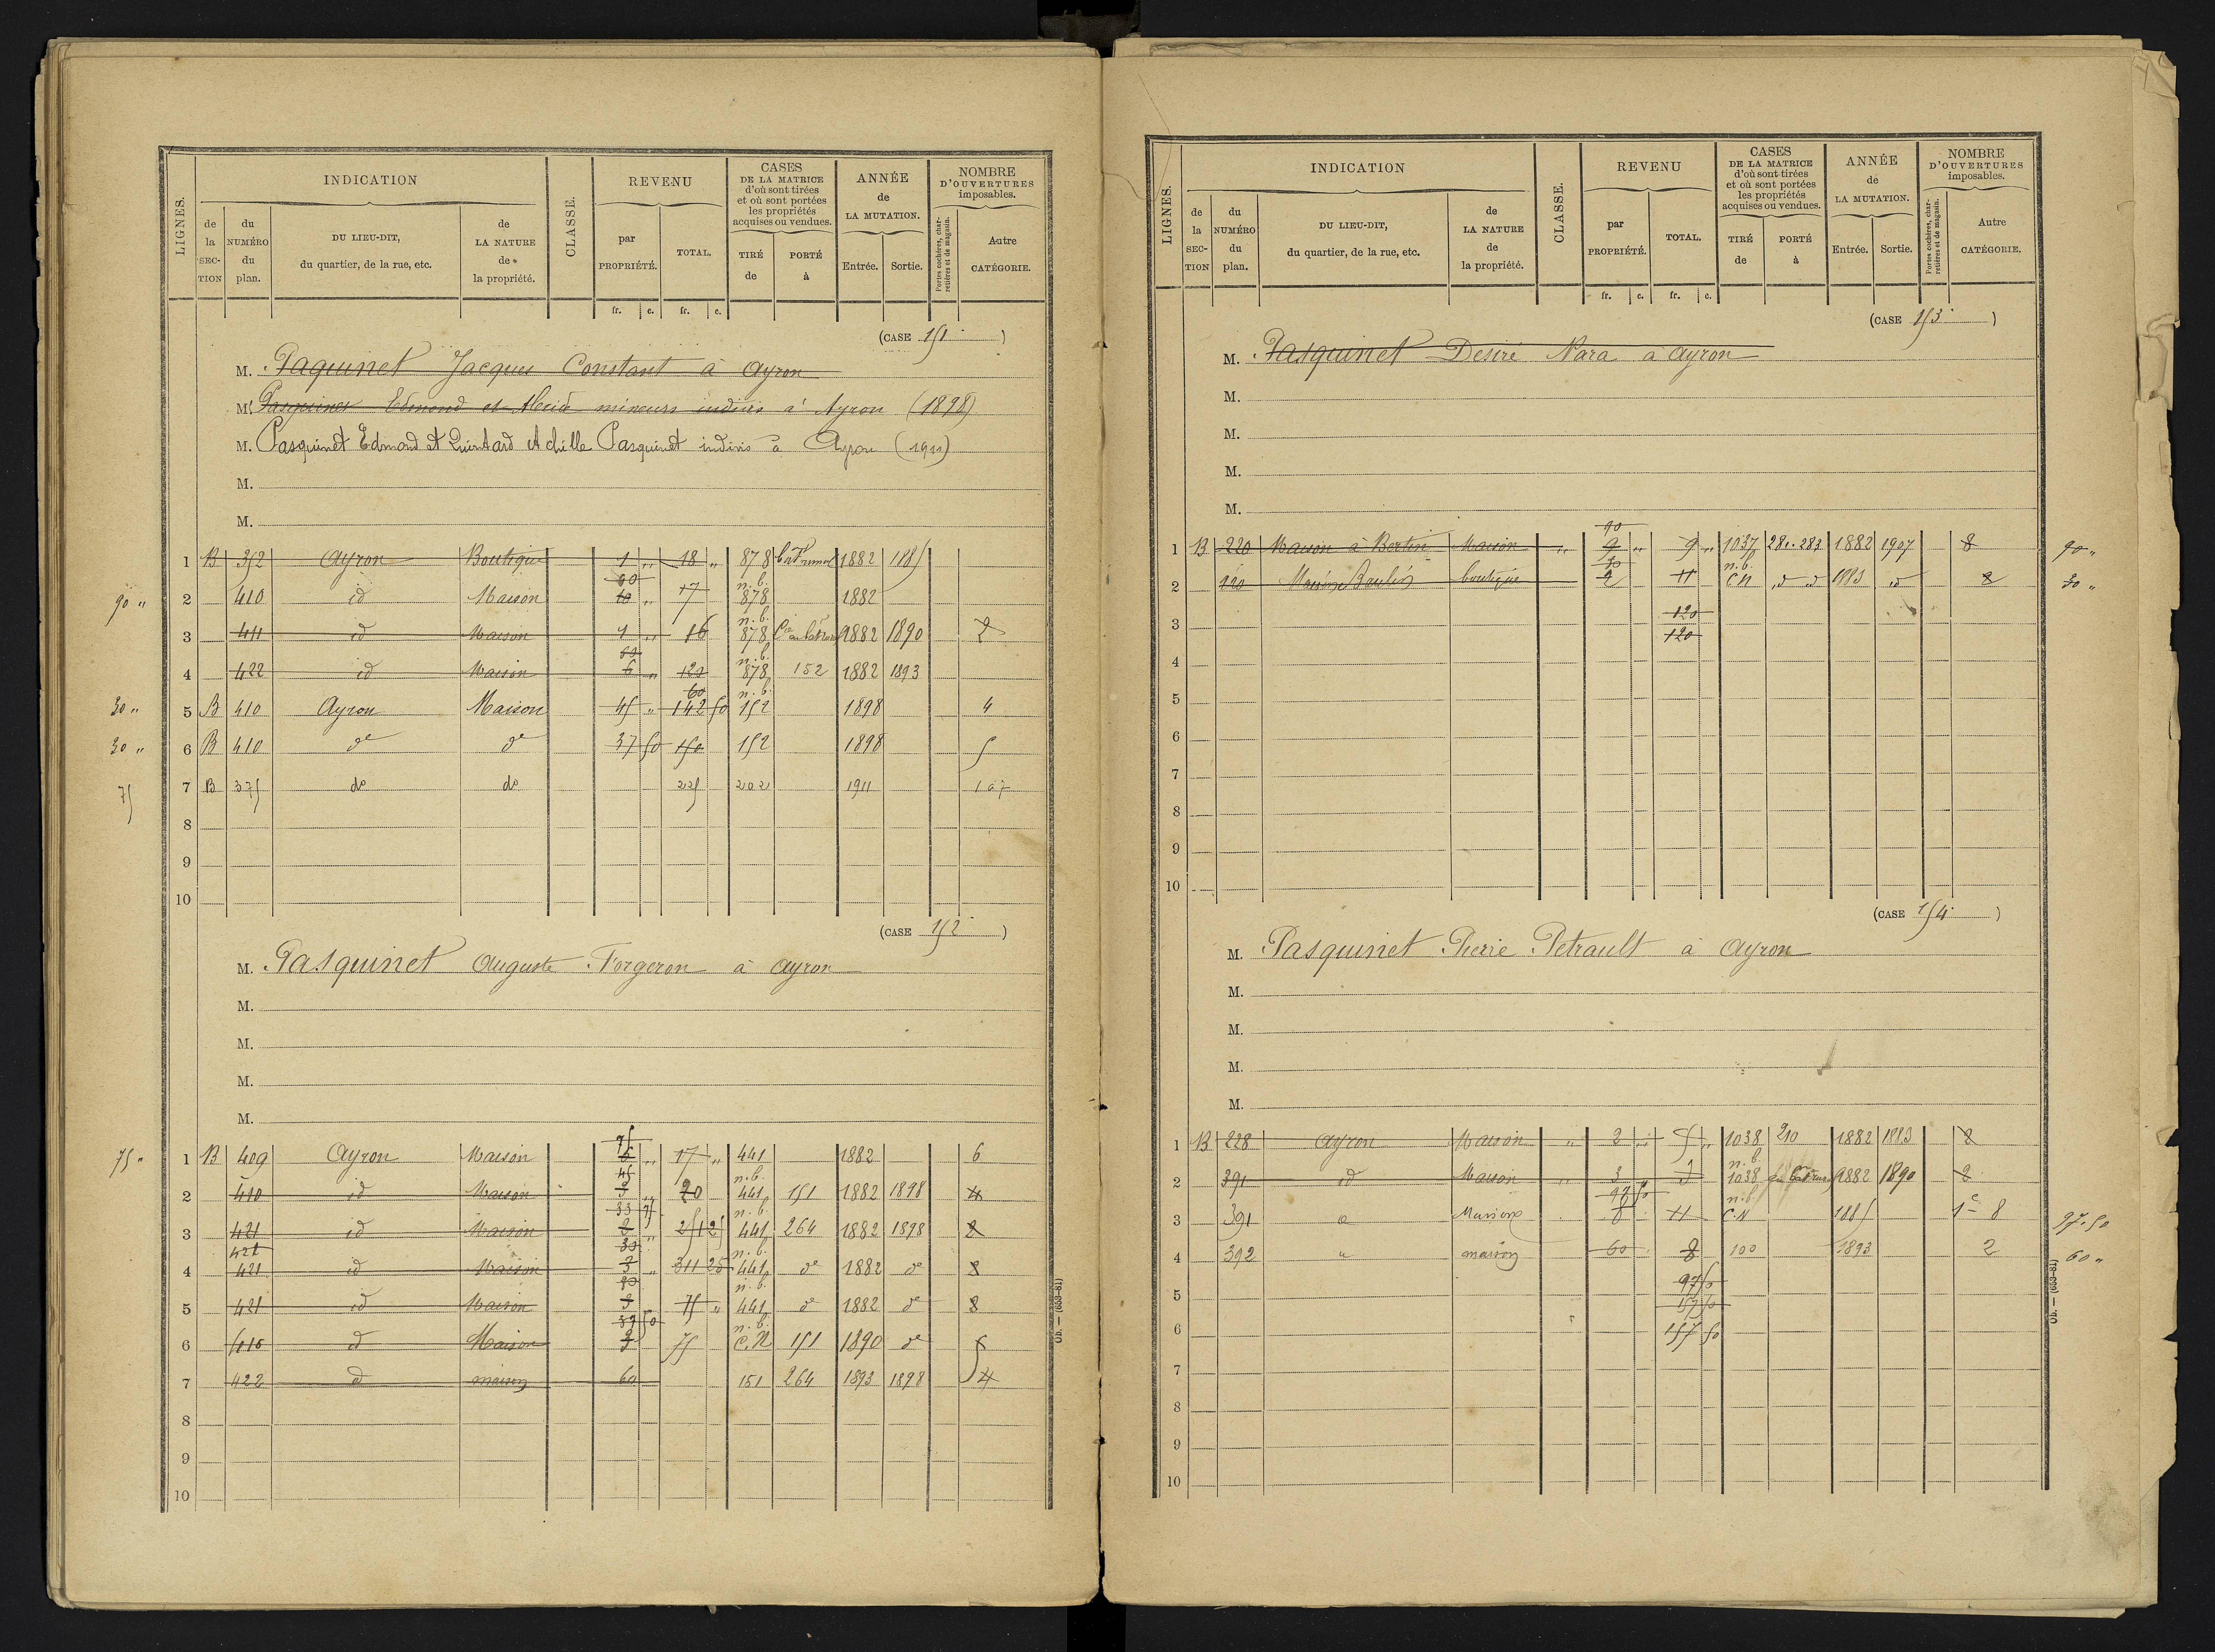 LIGNES. INDICATION CLASSE. REVENU CASES DE LA MATRICE d'où sont tirées et où sont portées les propriétés acquises ou vendues. ANNÉE de LA MUTATION. NOMBRE D'OUVERTURES imposables.
de la SECTION du NUMÉRO du plan. DU LIEU-DIT, du quartier, de la rue, etc. de LA NATURE de la propriété. par PROPRIÉTÉ. TOTAL. TIRÉ de PORTÉ à Entrée. Sortie. Portes cochères, charretières et de magasin. Autre CATÉGORIE.
fr. c. fr. c.
(CASE 151 )
M. Paquinet Jacques Constant à Ayron
M. Pasquinet Edmond et mineurs indivis à Ayron (1898)
M. Pasquinet Edmond et Quintard Achille Pasquinet indivis à Ayron (1911)
M.
M.
1 B 352 Ayron Boutique 1 " 18 " 878 1882 1885
90 " 2 410 id Maison 90 10 " 17 n.b. 878 1882
3 411 id Maison 1 " 16 n.b. 878 1882 1890 2
4 422 id Maison 60 6 " 120 n.b. 878 152 1882 1893
30 " 5 B 410 Ayron Maison 45 " 60 142 50 n.b. 152 1898 4
30 " 6 B 410 do do 37 50 150 152 1898 5
75 7 B 375 do do 225 202 1911 107
8
9
10
(CASE 152 )
M. Pasquinet Auguste Forgeron à Ayron
M.
M.
M.
M.
75 " 1 B 409 Ayron Maison 75 " 17 " 441 1882 6
2 410 id Maison 45 3 " 20 n.b. 441 151 1882 1898 4
3 421 id Maison 33 75 2 " 251 25 n.b. 441 264 1882 1898 2
4 421 421 id Maison 30 3 " 311 25 n.b. 441 do 1882 do 8
5 421 id Maison 90 3 75 " n.b. 441 do 1882 do 8
6 410 d Maison 37 50 2 75 n.b. C.N 151 1890 do 5
7 422 d maison 60 151 264 1893 1898 4
8
9
10
Ob. — (653-81)
LIGNES. INDICATION CLASSE. REVENU CASES DE LA MATRICE d'où sont tirées et où sont portées les propriétés acquises ou vendues. ANNÉE de LA MUTATION. NOMBRE D'OUVERTURES imposables.
de la SECTION du NUMÉRO du plan. DU LIEU-DIT, du quartier, de la rue, etc. de LA NATURE de la propriété. par PROPRIÉTÉ. TOTAL. TIRÉ de PORTÉ à Entrée. Sortie. Portes cochères, charretières et de magasin. Autre CATÉGORIE.
fr. c. fr. c.
(CASE 153 )
M. Pasquinet Desiré Nara à Ayron
M.
M.
M.
M.
1 B 220 Maison à Bertin Maison " 90 9 " 9 " 1037 281.283 1882 1907 8 90 "
2 220 boutique 30 2 11 n.b. C.N d d 1883 d 2 30 "
3 120 120
4
5
6
7
8
9
10
(CASE 154 )
M. Pasquinet Pierre Petrault à Ayron
M.
M.
M.
M.
1 B 228 Ayron Maison " 2 " 5 " 1038 210 1882 1883 8
2 391 id Maison " 3 3 n.b. 1038 1882 1890 2
3 391 d Maison 97 50 8 11 n.b. C.N 1885 1 8 97.50
4 392 " maison 60 8 100 1893 2 60 "
5 97 50 157 50
6 157 50
7
8
9
10
Ob. — (653-81)